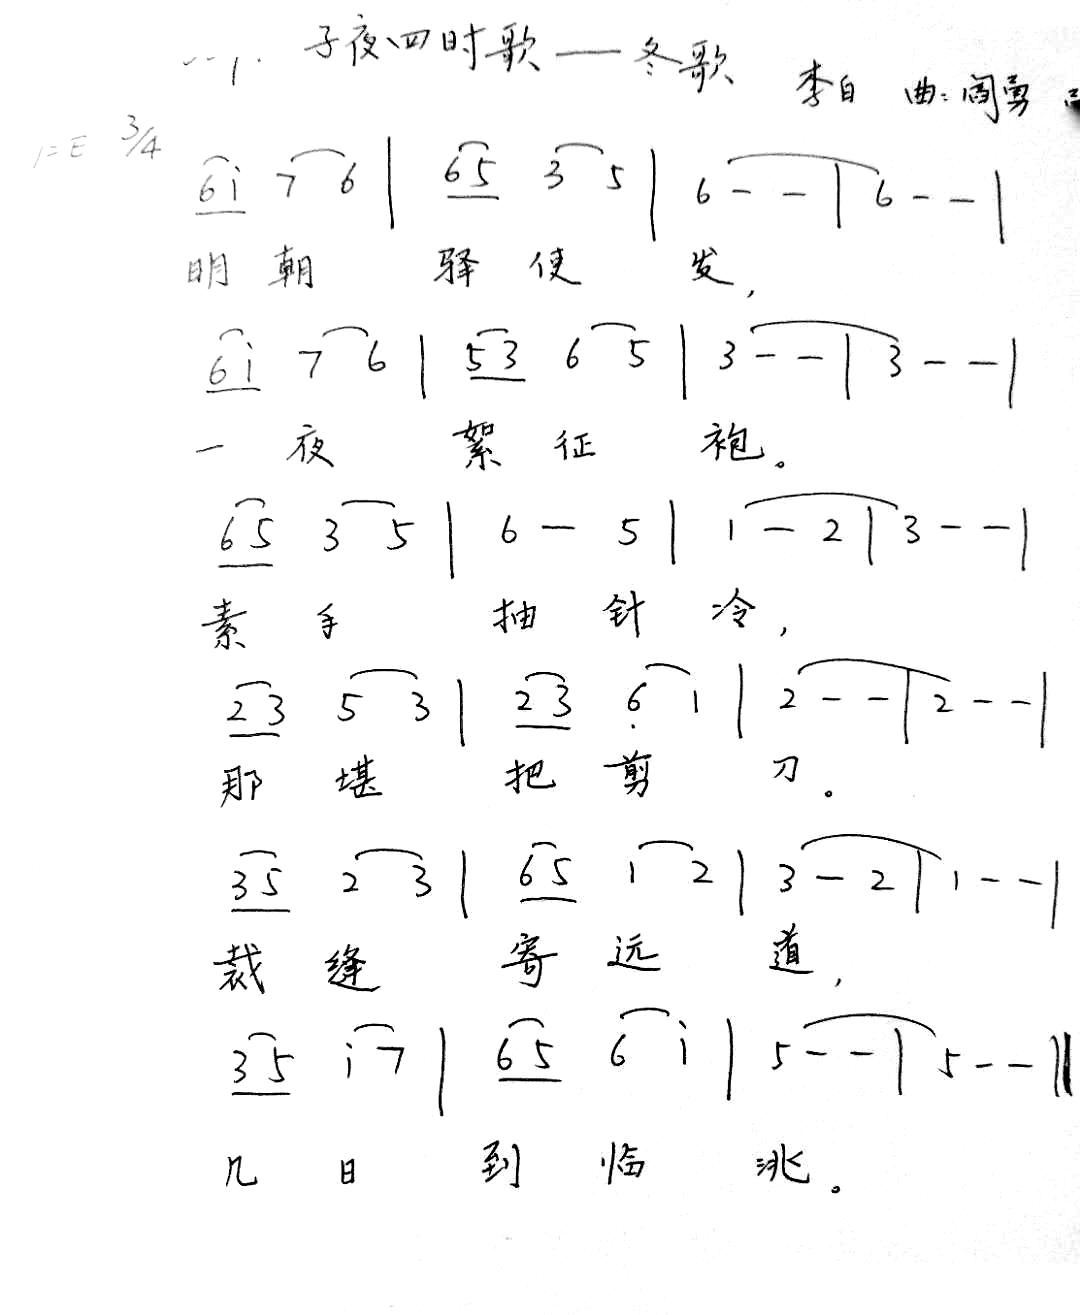 子夜四时歌——冬歌
李白 曲:阎勇
1=E 3/4
6i 7 6 | 65 3 5 | 6 - - | 6 - - |
明朝 驿使 发,
6i 7 6 | 53 6 5 | 3 - - | 3 - - |
一夜 絮征 袍。
65 3 5 | 6 - 5 | 1 - 2 | 3 - - |
素手 抽针冷,
23 5 3 | 23 6̣ 1 | 2 - - | 2 - - |
那堪 把剪 刀。
35 2 3 | 65 1 2 | 3 - 2 | 1 - - |
裁缝 寄远 道,
35 i 7 | 65 6 i | 5 - - | 5 - - ‖
几日 到临 洮。